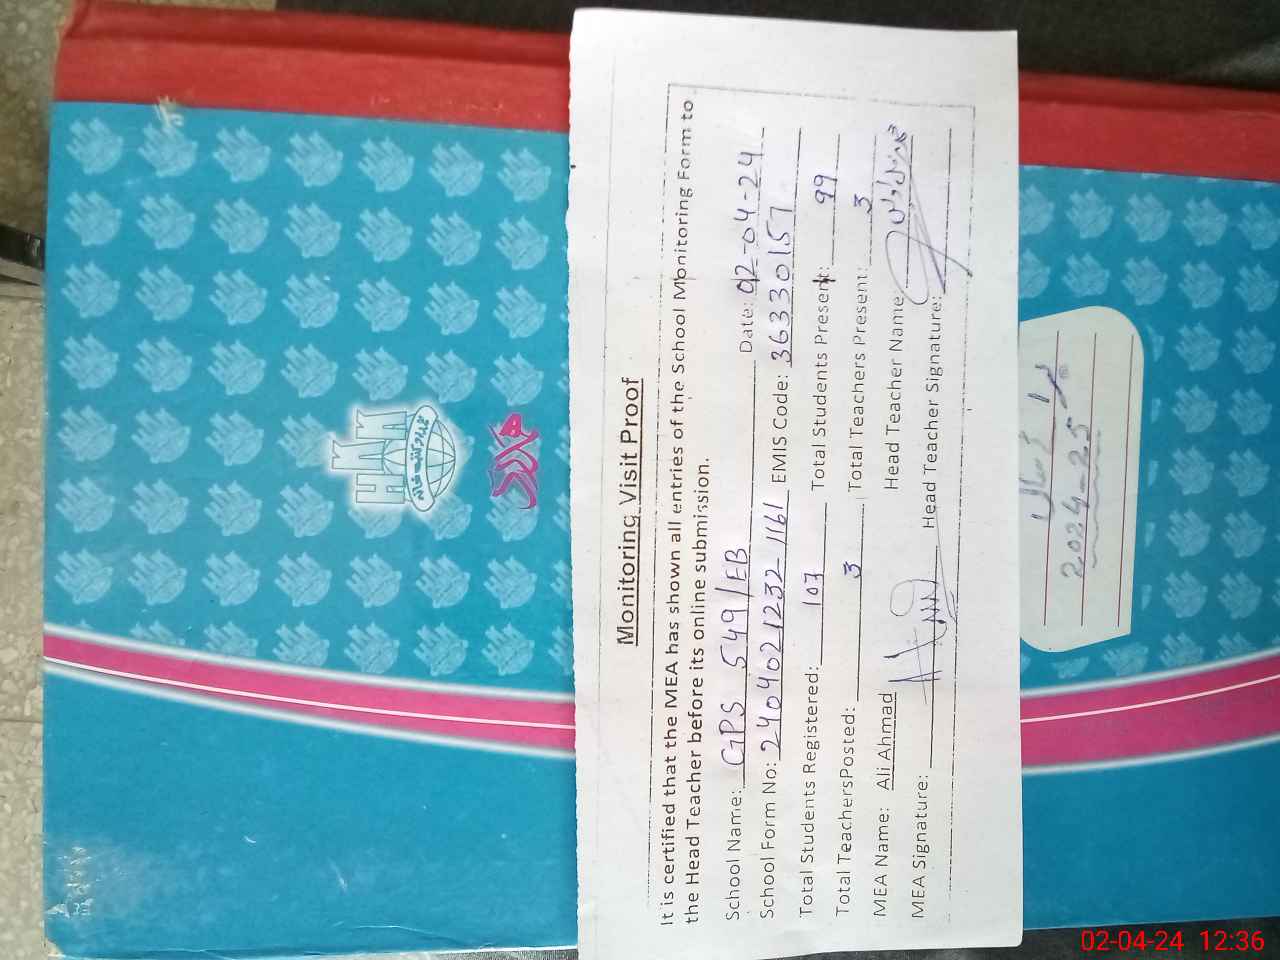 Monitoring Visit Proof
It is certified that the MEA has shown all entries of the School Monitoring Form to
the Head Teacher before its online submission.
School Name: GPS 549/EB Date: 02-04-24
School Form No: 2404021232-1161 EMIS Code: 36330157
Total Students Registered: 107 Total Students Present: 99
Total TeachersPosted: 3 Total Teachers Present: 3
MEA Name: Ali Ahmad Head Teacher Name:
MEA Signature: Head Teacher Signature:
HKK
2024-25
02-04-24 12:36